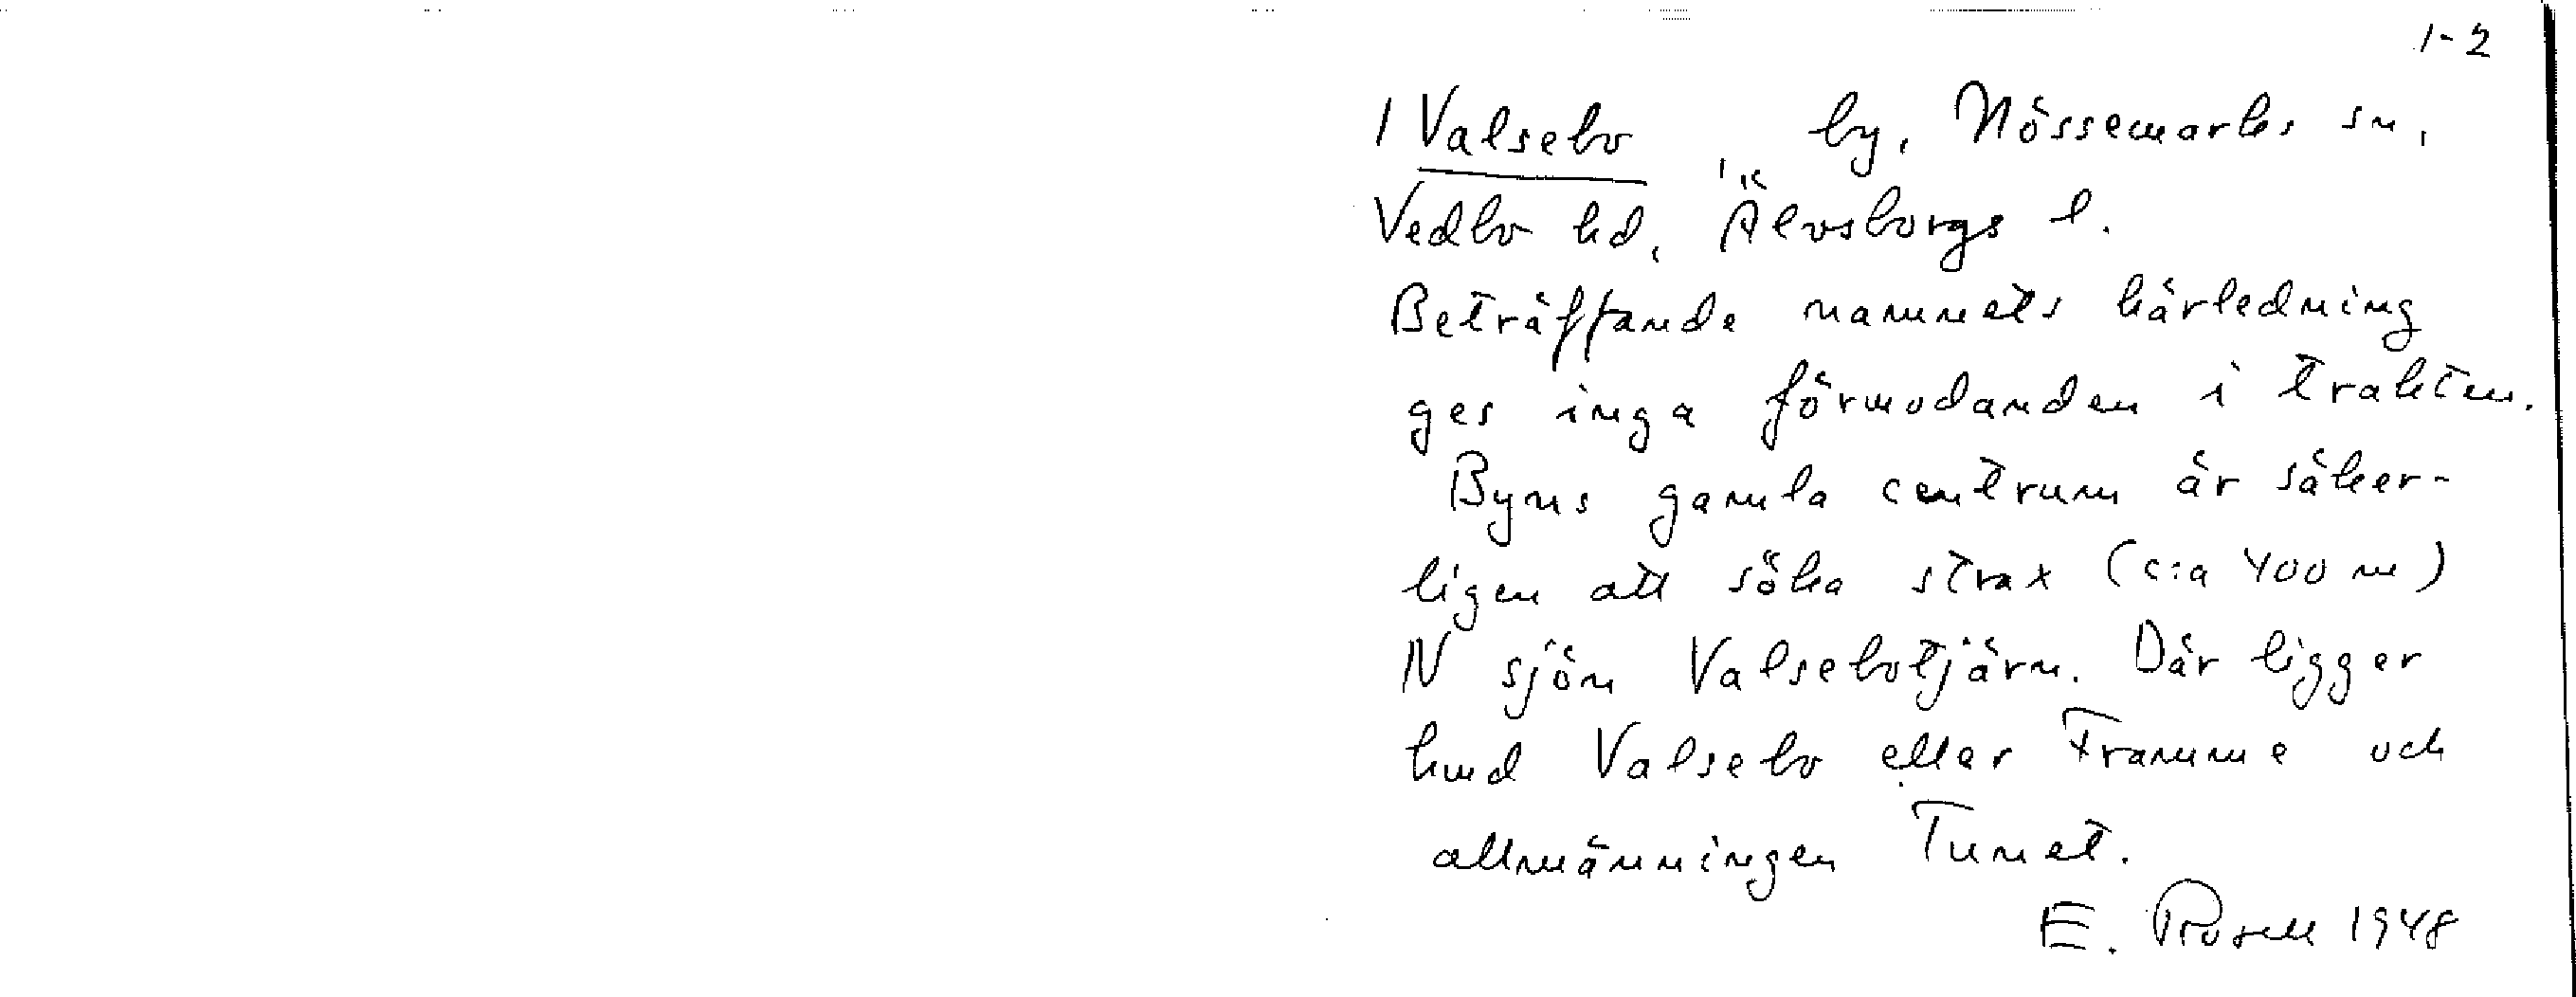 1-2
1 Valsebo, by, Nössemarks sn,
Vedbo hd, Älvsborgs l.
Beträffande namnets härledning
ges inga förmodanden i trakten.
Byns gamla centrum är säker-
ligen att söka strax (c:a 400 m)
N sjön Valsebotjärn. Där ligger
hmd Valsebo eller Framme och
allmänningen Tunet.
E. Rosell 1948